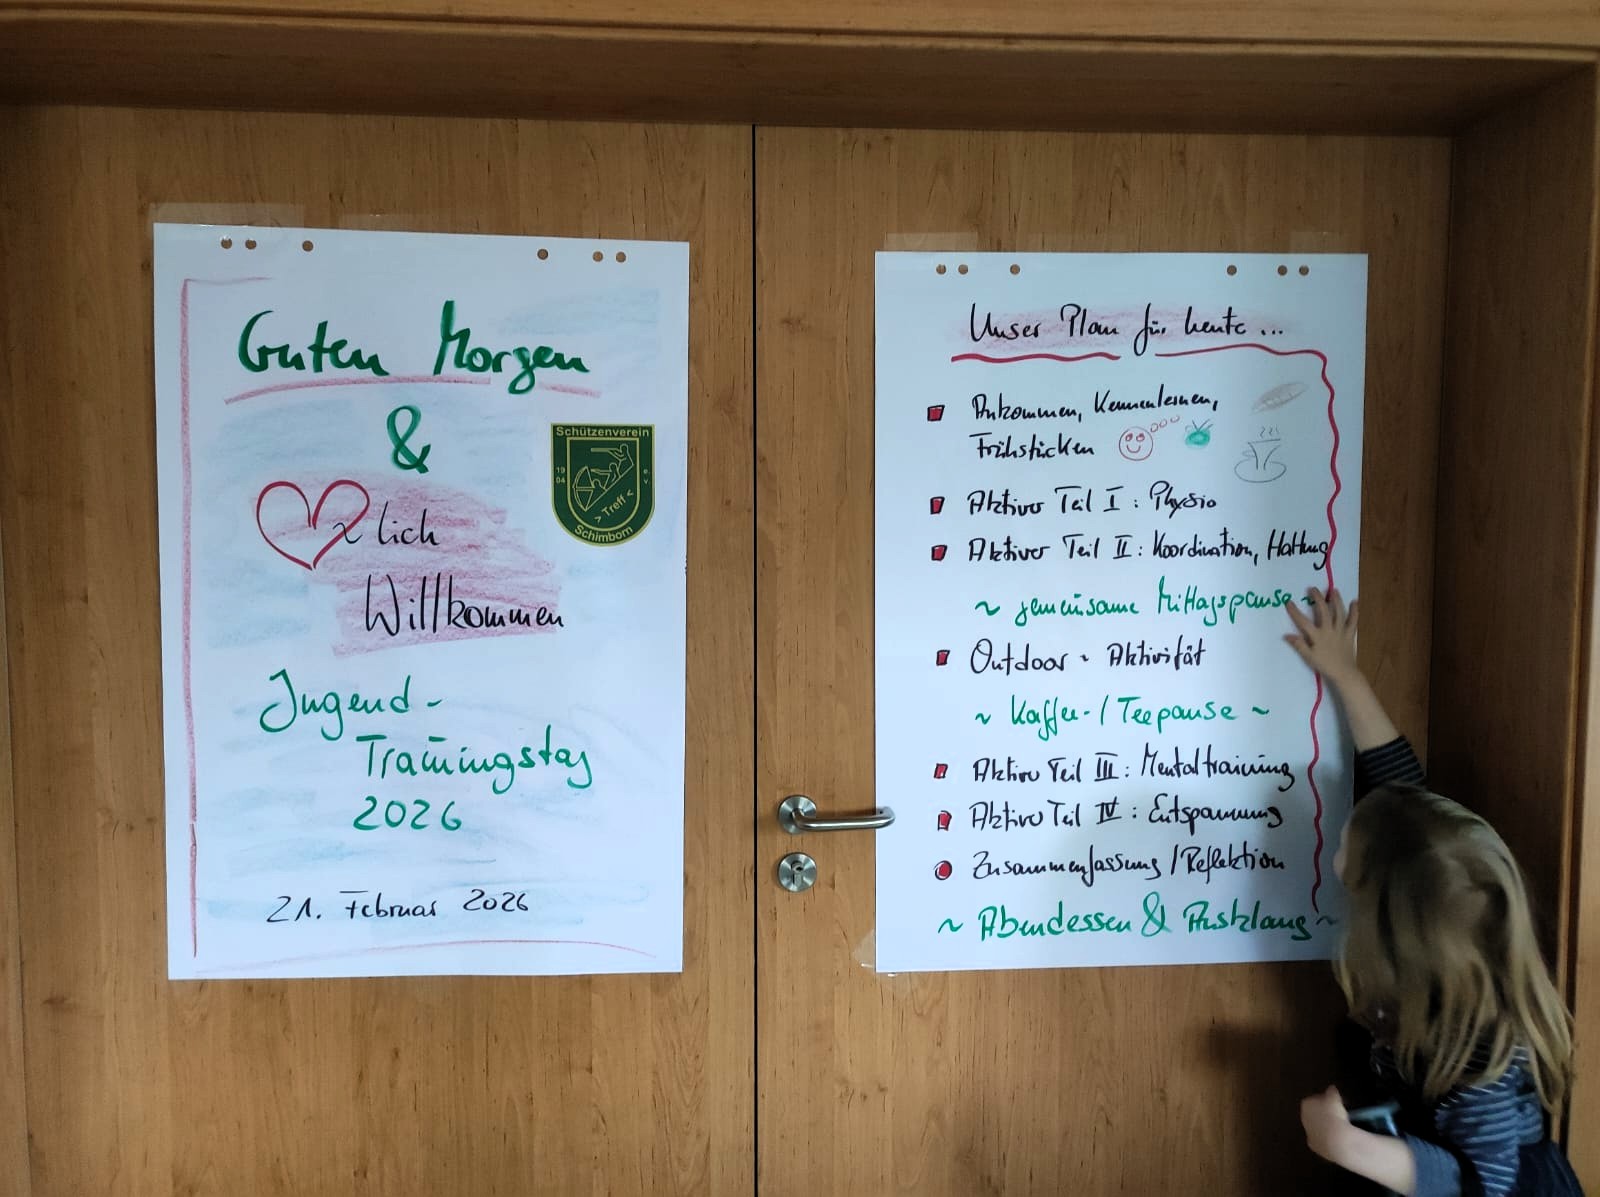 Guten Morgen
&
zlich
Willkommen
Jugend-
Trainingstag
2026
21. Februar 2026
Schützenverein
1904
e.V.
> Treff <
Schimborn
Unser Plan für heute ...
Ankommen, Kennenlernen,
Frühstücken
Aktiver Teil I : Physio
Aktiver Teil II : Koordination, Haltung
~ gemeinsame Mittagspause ~
Outdoor - Aktivität
~ Kaffee- / Teepause ~
Aktiver Teil III : Mentaltraining
Aktiver Teil IV : Entspannung
Zusammenfassung / Reflektion
~ Abendessen & Ausklang ~